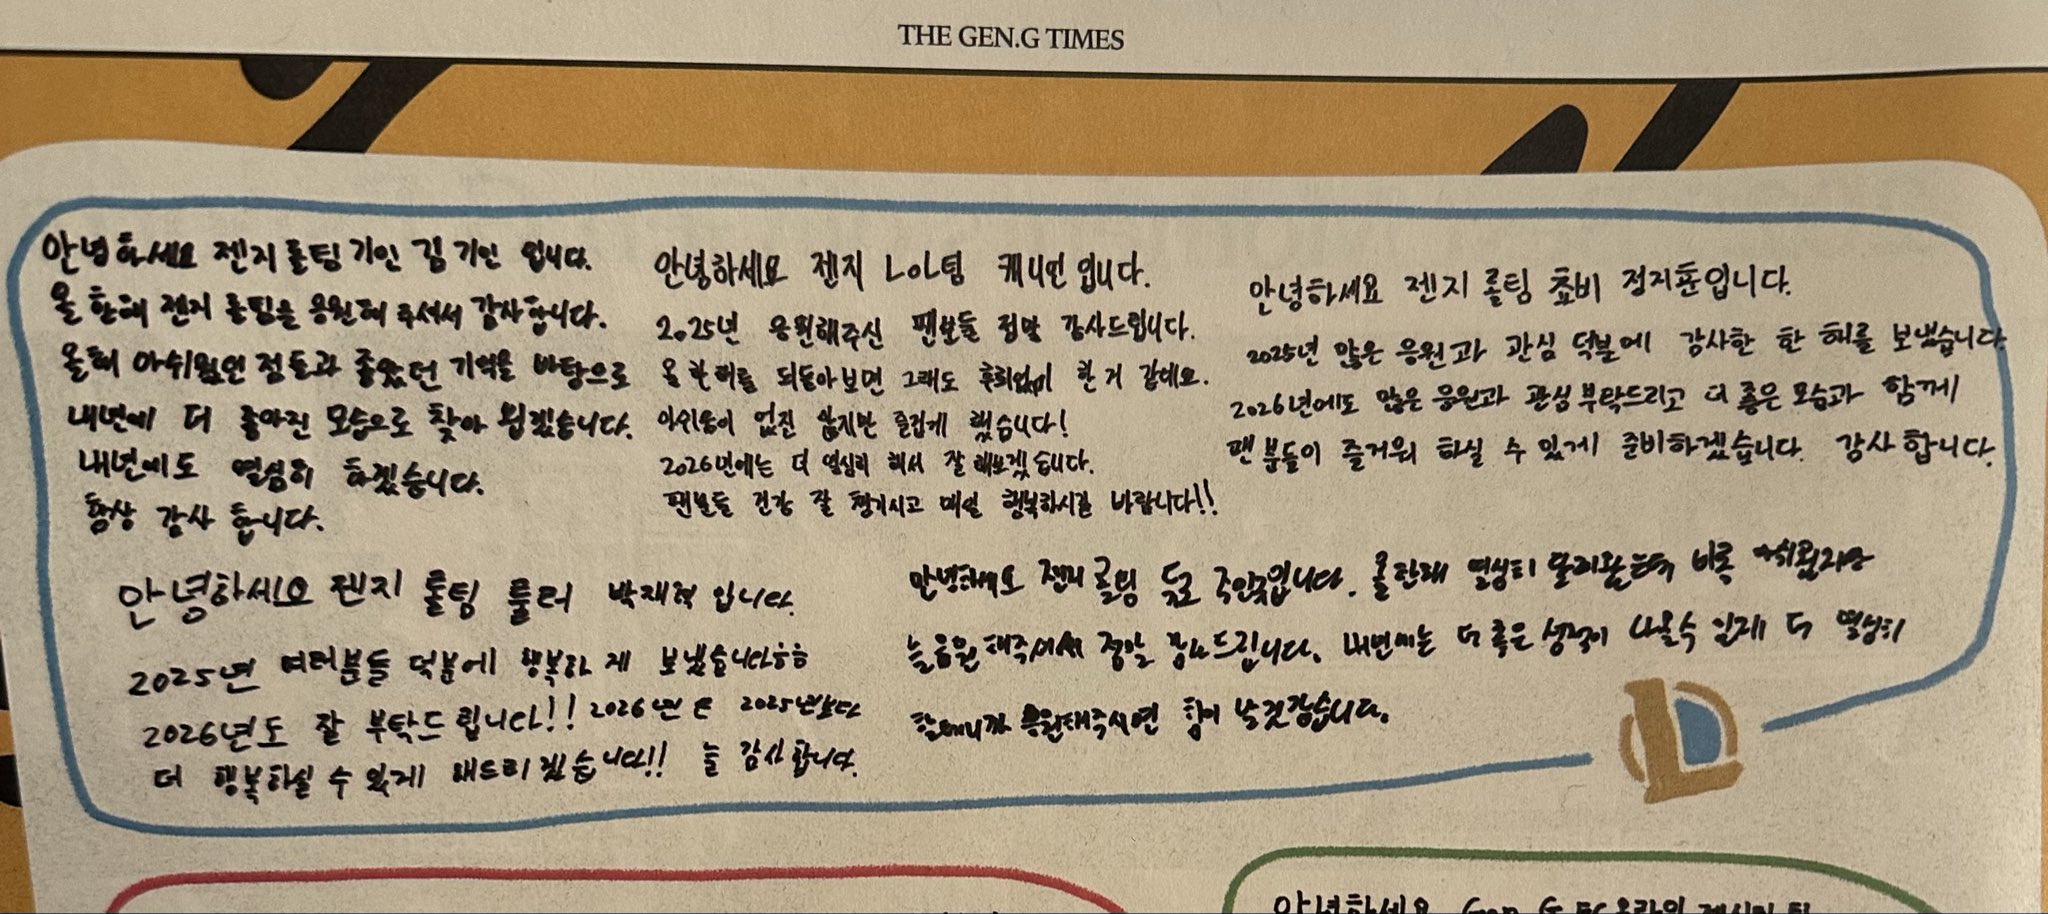 THE GEN.G TIMES
안녕하세요 젠지 롤팀 기인 김기인 입니다.
올 한해 젠지 롤팀을 응원해 주셔서 감사합니다.
올해 아쉬웠던 점들과 좋았던 기억을 바탕으로
내년에 더 좋아진 모습으로 찾아 뵙겠습니다.
내년에도 열심히 하겠습니다.
항상 감사 합니다.
안녕하세요 젠지 LoL팀 캐니언입니다.
2025년 응원해주신 팬분들 정말 감사드립니다.
올 한해를 되돌아보면 그래도 후회없이 한 거 같네요.
아쉬움이 없진 않지만 즐겁게 했습니다!
2026년에는 더 열심히 해서 잘 해보겠습니다.
팬분들 건강 잘 챙기시고 매일 행복하시길 바랍니다!!
안녕하세요 젠지 롤팀 쵸비 정지훈입니다.
2025년 많은 응원과 관심 덕분에 감사한 한 해를 보냈습니다.
2026년에도 많은 응원과 관심 부탁드리고 더 좋은 모습과 함께
팬 분들이 즐거워 하실 수 있게 준비하겠습니다. 감사합니다.
안녕하세요 젠지 롤팀 룰러 박재혁 입니다.
2025년 여러분들 덕분에 행복하게 보냈습니다ㅎㅎ
2026년도 잘 부탁드립니다!! 2026년은 2025년보다
더 행복하실 수 있게 해드리겠습니다!! 늘 감사합니다.
안녕하세요 젠지 롤팀 듀로 주민규입니다. 올한해 열심히 달려왔는데 비록 아쉬웠지만
늘 응원해주셔서 정말 감사드립니다. 내년에는 더 좋은 성적이 나올수 있게 더 열심히
할테니까 응원해주시면 힘이 날것같습니다.
안녕하세요 Gen.G FC온라인